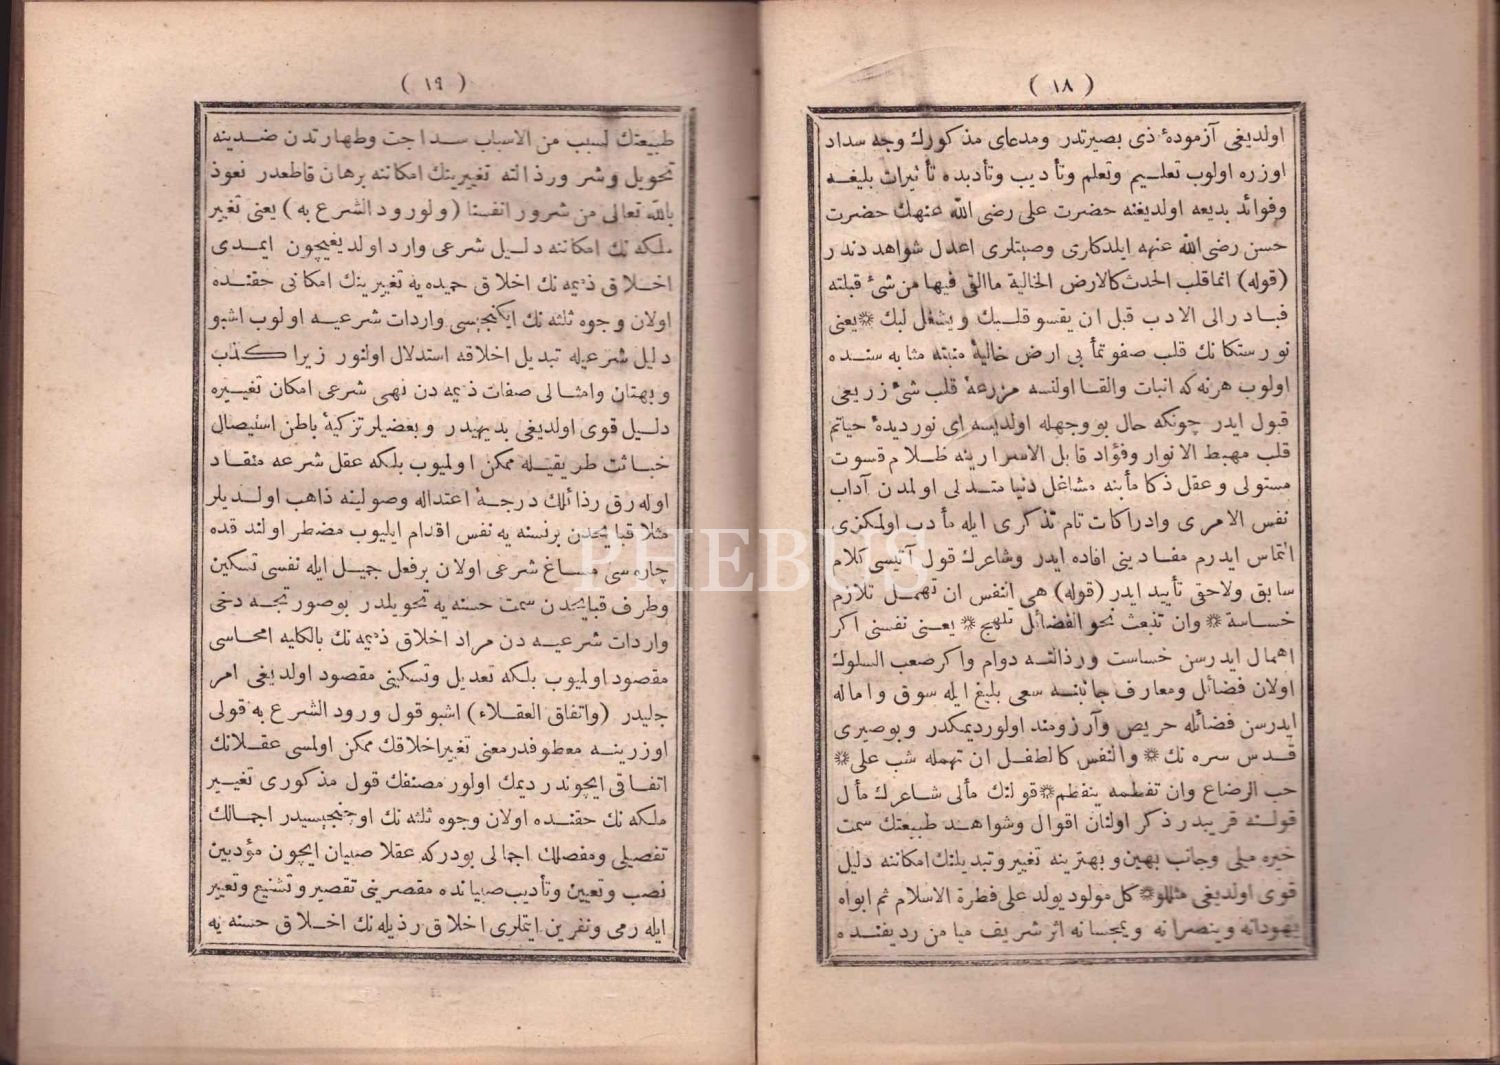 ( ١٨ )
اولدیغی آزمودهٔ ذی بصیرتدر ومدعای مذکورك وجه سداد
اوزره اولوب تعلیم وتعلم وتأدیب وتأدبده تأثیرات بلیغه
وفوائد بدیعه اولدیغنه حضرت علی رضی الله عنهك حضرت
حسن رضی الله عنهه ایلدکاری وصیتلری اعدل شواهد دندر
(قوله) انماقلب الحدث کالارض الخالیة ماالقی فیها من شئ قبلته
فبادر الی الادب قبل ان یقسو قلبك ویشغل لبك ❊ یعنی
نورستکانك قلب صفوتمأبی ارض خالیهٔ منبته مثابه سنده
اولوب هرنه که انبات والقا اولنسه مزرعهٔ قلب شئ زریعی
قبول ایدر چونکه حال بو وجهله اولدیسه ای نوردیدهٔ حیاتم
قلب مهبط الانوار وفؤاد قابل الاسرارینه ظلام قسوت
مستولی وعقل ذکامأبنه مشاغل دنیا متدلی اولمدن آداب
نفس الامری وادراکات تام تذکری ایله مأدب اولمکزی
التماس ایدرم مفادینی افاده ایدر وشاعرك قول آتیسی کلام
سابق ولاحق تأیید ایدر (قوله) هی النفس ان تهمل تلازم
خساسة ❊ وان تنبعث نحو الفضائل تلهج ❊ یعنی نفسنی اکر
اهمال ایدرسن خساست ورذالتده دوام واکر صعب السلوك
اولان فضائل ومعارف جانبنه سعی بلیغ ایله سوق واماله
ایدرسن فضائله حریص وآرزومند اولور دیمکدر وبوصیری
قدس سره نك ❊ والنفس کالطفل ان تهمله شب علی ❊
حب الرضاع وان تفطمه ینفطم ❊ قولنك مألی شاعرك مأل
قولنه قریبدر ذکر اولنان اقوال وشواهد طبیعتك سمت
خیره میلی وجانب بهین وبهترینه تغییر وتبدیلنك امکاننه دلیل
قوی اولدیغی مثللو ❊ کل مولود یولد علی فطرة الاسلام ثم ابواه
یهودانه وینصرانه ویمجسانه اثر شریف میامن ردیفنده
( ١٩ )
طبیعتك لسبب من الاسباب سداجت وطهارتدن ضدینه
تحویل وشر ورذالته تغییرینك امکاننه برهان قاطعدر نعوذ
بالله تعالی من شرور انفسنا (ولورود الشرع به) یعنی تغییر
ملکه نك امکاننه دلیل شرعی وارد اولدیغیچون ایمدی
اخلاق ذمیمه نك اخلاق حمیده یه تغییرینك امکانی حقنده
اولان وجوه ثلثه نك ایکنجیسی واردات شرعیه اولوب اشبو
دلیل شرعیله تبدیل اخلاقه استدلال اولنور زیرا کذب
وبهتان وامثالی صفات ذمیمه دن نهی شرعی امکان تغییره
دلیل قوی اولدیغی بدیهیدر وبعضیلر تزکیهٔ باطن استیصال
خباثت طریقیله ممکن اولمیوب بلکه عقل شرعه منقاد
اوله رق رذائلك درجهٔ اعتداله وصولینه ذاهب اولدیلر
مثلا قبایحدن برنسنه یه نفس اقدام ایلیوب مضطر اولندقده
چاره سی مساغ شرعی اولان برفعل جمیل ایله نفسی تسکین
وطرف قبایحدن سمت حسنه یه تحویلدر بوصورتجه دخی
واردات شرعیه دن مراد اخلاق ذمیمه نك بالکلیه امحاسی
مقصود اولمیوب بلکه تعدیل وتسکینی مقصود اولدیغی امر
جلیدر (واتفاق العقلاء) اشبو قول ورود الشرع به قولی
اوزرینه معطوفدر معنی تغییر اخلاقك ممکن اولمسی عقلانك
اتفاقی ایچوندر دیمك اولور مصنفك قول مذکوری تغییر
ملکه نك حقنده اولان وجوه ثلثه نك اوچنجیسیدر اجمالك
تفصیلی ومفصلك اجمالی بودرکه عقلا صبیان ایچون مؤدبین
نصب وتعیین وتأدیب صبیانده مقصرینی تقصیر وتشنیع وتعییر
ایله رمی ونفرین ایتملری اخلاق رذیله نك اخلاق حسنه یه
PHEBUS